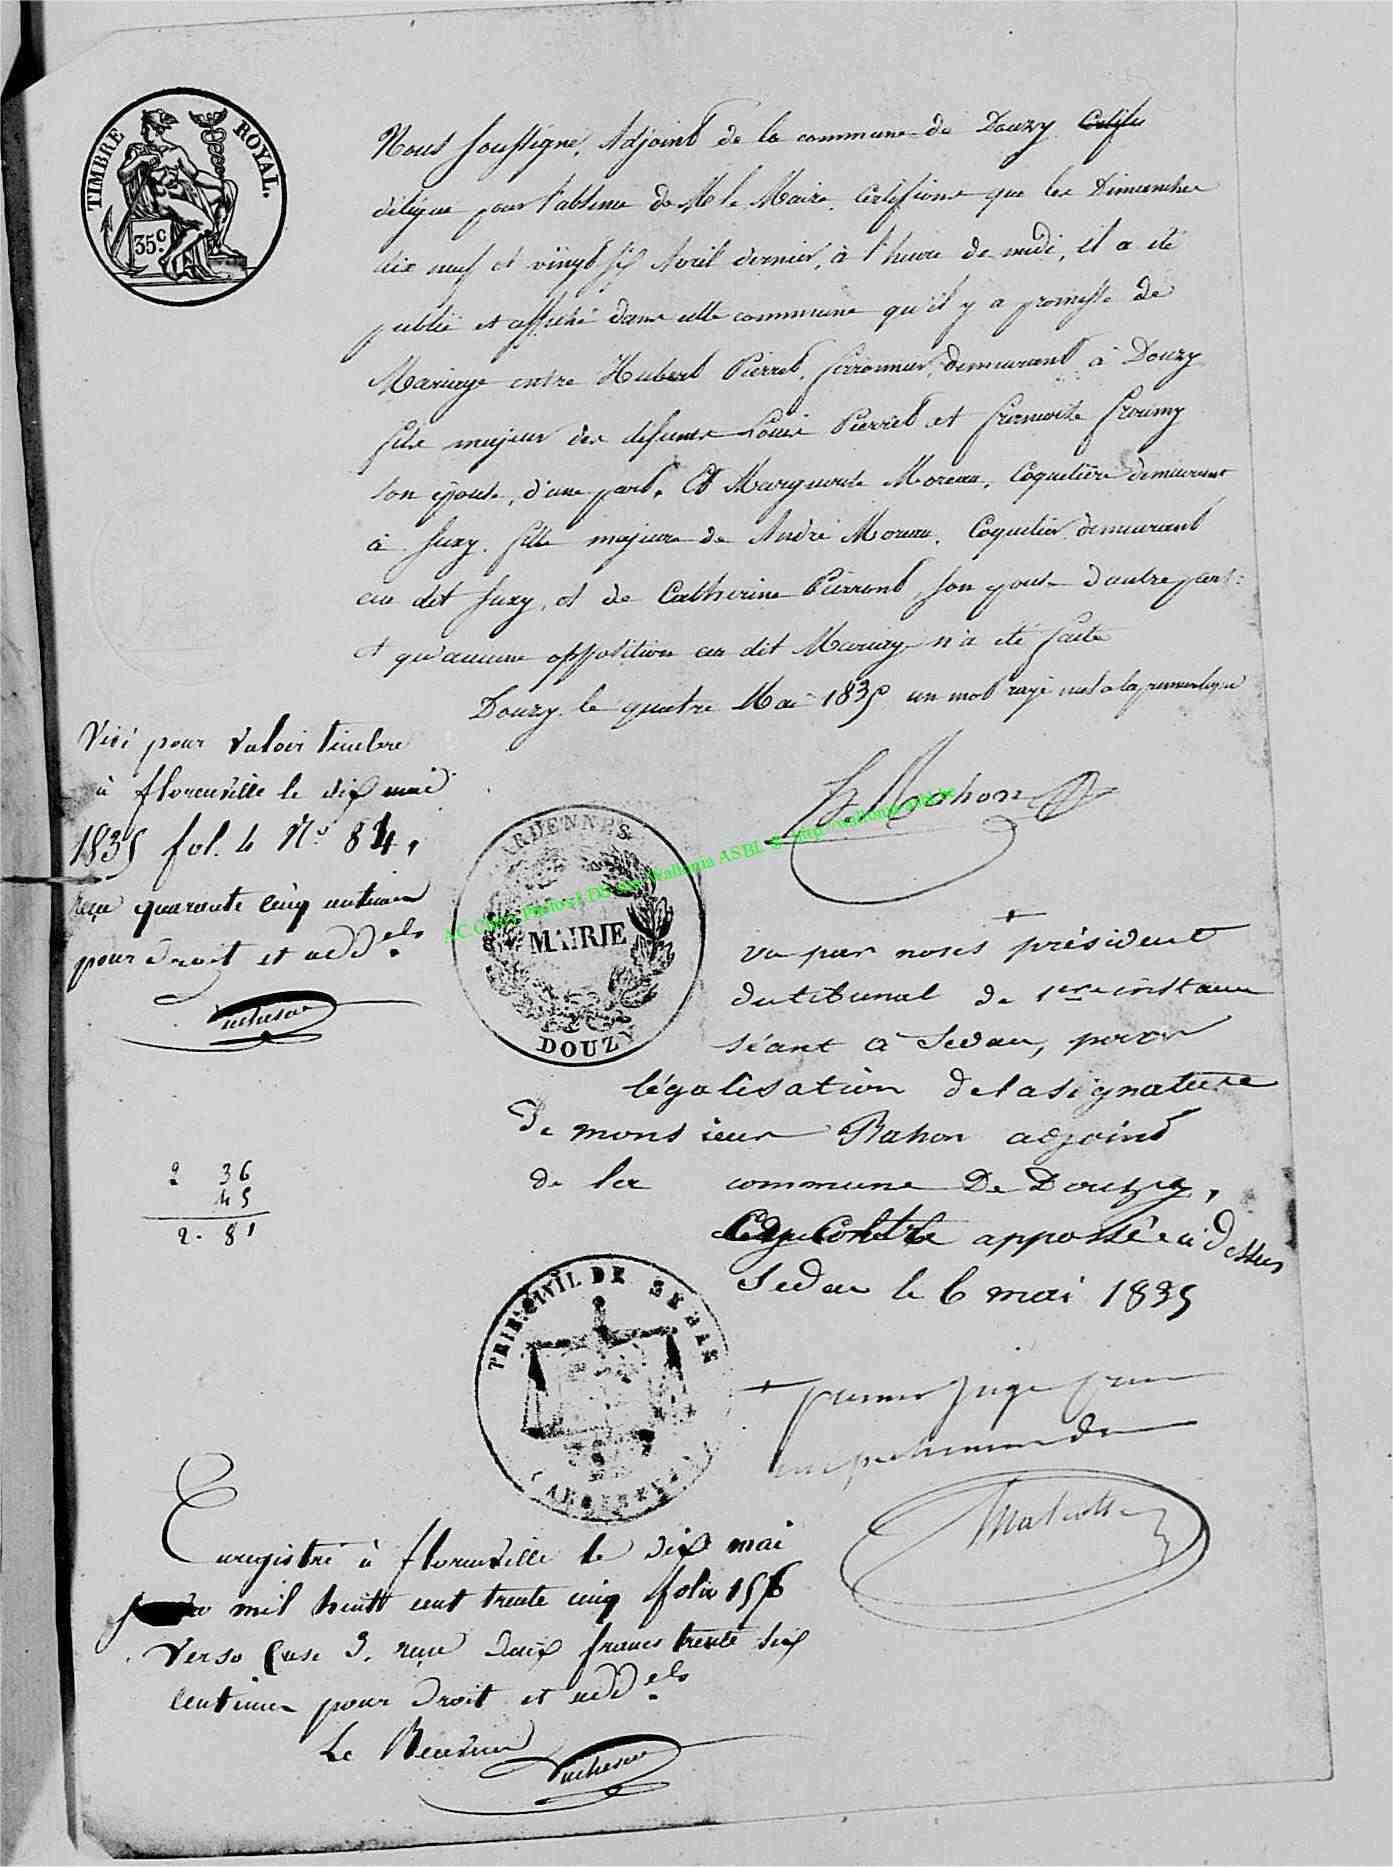 TIMBRE ROYAL.
35c.
Nous soussigné, Adjoint de la commune de Douzy Certifie
délégué pour l'absence de Mr le Maire, Certifions que les Dimanches
dix neuf et vingt six Avril dernier, à l'heure de midi, il a été
publié et affiché dans cette commune qu'il y a promesse de
Mariage entre Hubert Pierret, ferronnier, demeurant à Douzy
fils majeur des défunts Louis Pierret et
son épouse, d'une part, Et Marguerite Moreau, Coquetière demeurant
à Suxy, fille majeure de André Moreau, Coquetier demeurant
au dit Suxy, et de Catherine Pierrard, son épouse d'autre part;
et qu'aucune opposition au dit Mariage n'a été faite
Douzy le quatre Mai 1835 un mot rayé nul à la première ligne
Visé pour valoir timbre
à florenville le dix mai
1835 fol. 4 No. 84,
reçu quarante cinq centimes
pour droit et addels.
Duchesne
ARDENNES
MAIRIE
DOUZY
vu par nous + président
du tribunal de 1ere instance
séant à Sedan, pour
légalisation de la signature
de monsieur Bahon adjoint
de la commune De Douzy,
apposée ci dessus
Sedan le 6 mai 1835
2 36
45
2. 81
TRIB. CIVIL DE SEDAN
(ARDENNES)
+ premier juge pour
Enregistré à florenville le dix mai
mil huit cent trente cinq folio 156
verso Case 3. reçu deux francs trente six
centimes pour droit et addels.
Le Receveur
Duchesne